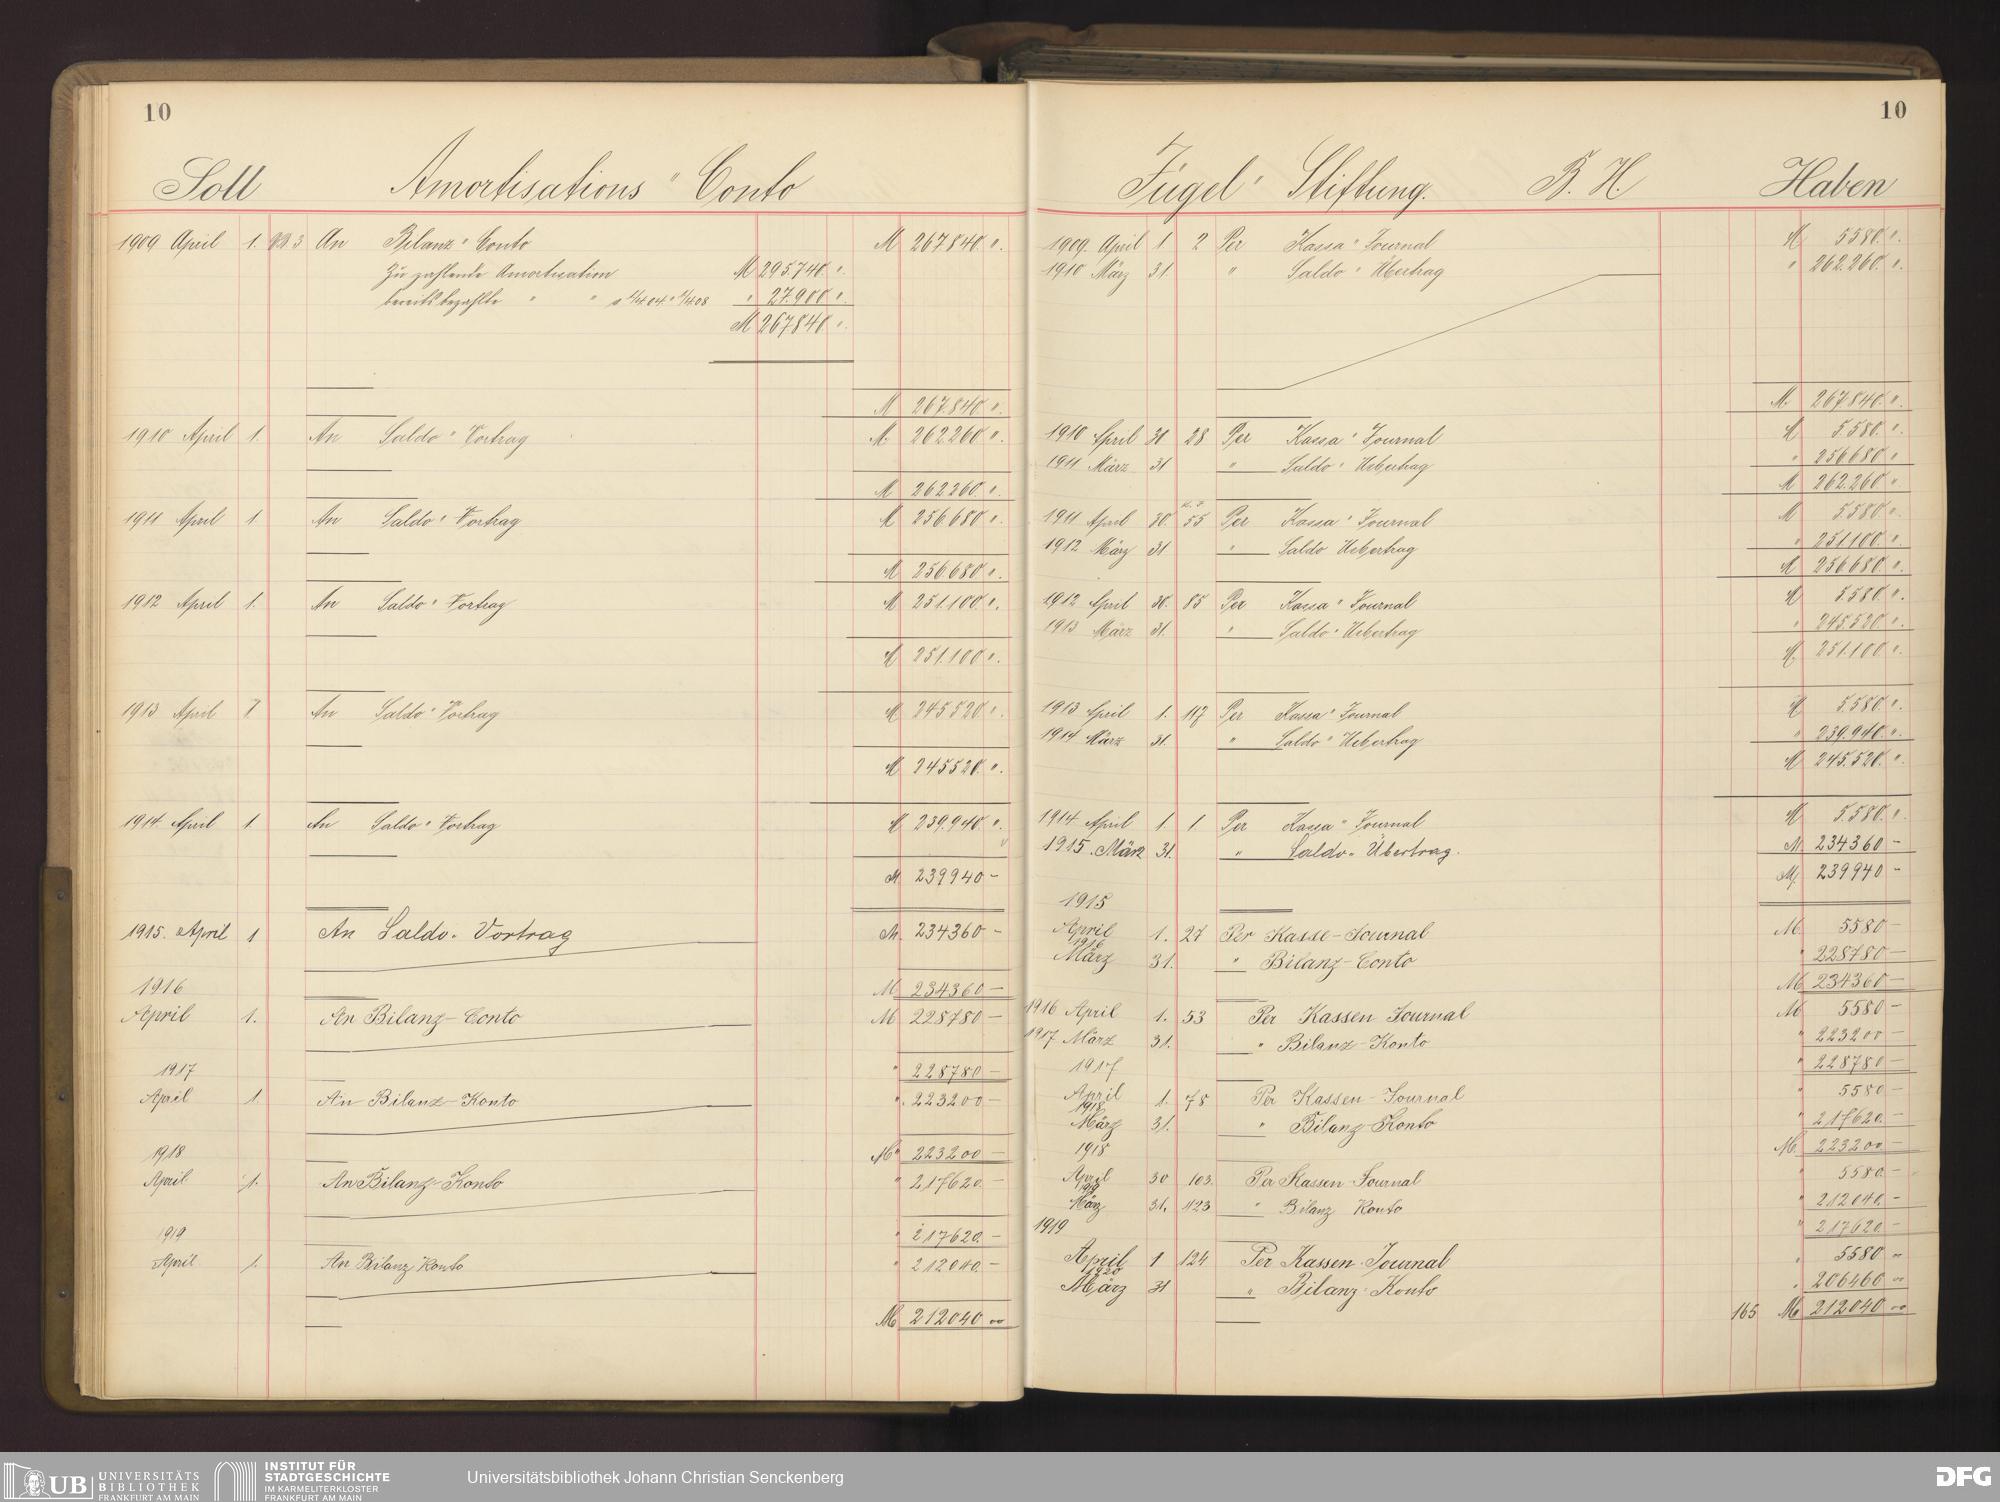 10
Soll Amortisations " Conto
1909 April 1. An Bilanz " Conto M 267840 ".
Zu zahlende Amortisation M 295.740 ".
bereits bezahlte " " " 27.900 ".
M 267840 ".
M 267.840 ".
1910 April 1. An Saldo " Vortrag M 262260 ".
M 262260 ".
1911 April 1. An Saldo " Vortrag M 256680 ".
M 256680 ".
1912 April 1. An Saldo " Vortrag M 251.100 ".
M 251.100 ".
1913 April 1. An Saldo " Vortrag M 245520 ".
M 245520 ".
1914 April 1. An Saldo " Vortrag M 239.940 ".
M 239940 -
1915. April 1 An Saldo-Vortrag M. 234360 -
M 234360 -
1916
April 1. An Bilanz-Conto M 228780 -
" 228780 -
1917
April 1. An Bilanz-Konto " 223200 -
M 223200 -
1918
April 1. An Bilanz-Konto " 217620. -
" 217620. -
1919
April 1. An Bilanz Konto " 212040. -
M 212040 00
10
Fügel " Stiftung. B. H. Haben
1909. April 1. 2 Per Kassa " Journal M 5580. ".
1910 März 31. " Saldo " Übertrag " 262.260. ".
M 267.840. ".
1910 April 30 28 Per Kassa " Journal M 5.580. ".
1911 März 31 " Saldo " Uebertrag " 256.680 ".
M 262.260 "
1911 April 30. 55 Per Kassa " Journal M 5.580. ".
1912 März 31 " Saldo Uebertrag " 251.100. ".
M 256.680. ".
1912 April 30. 85 Per Kassa " Journal M 5.580. ".
1913 März 31. " Saldo " Uebertrag " 245.520. ".
M 251.100 ".
1913 April 1. 117 Per Kassa " Journal M 5.580. ".
1914 März 31. " Saldo " Uebertrag " 239.940. ".
M 245.520. ".
1914 April 1. 1. Per Kassa " Journal M 5.580. ".
1915. März 31. " Saldo-Übertrag. M 234360 -
M 239940 -
1915
April 1. 27 Per Kasse-Journal M 5580 -
1916
März 31. " Bilanz-Conto " 228780 -
M 234360 -
1916 April 1. 53 Per Kassen Journal M 5580 -
1917 März 31. " Bilanz-Konto " 223200 -
" 228780 -
1917
April 1. 78 Per Kassen-Journal " 5580 -
1918
März 31. " Bilanz-Konto " 217620. -
M. 223200 -
1918
April 30 103. Per Kassen-Journal " 5580. -
1919
März 31. 123 " Bilanz Konto " 212040. -
" 217620 -
1919
April 1 124 Per Kassen-Journal " 5580 00
1920
März 31 " Bilanz-Konto " 206460 00
165 M 212040 00
UB UNIVERSITÄTS
BIBLIOTHEK
FRANKFURT AM MAIN
INSTITUT FÜR
STADTGESCHICHTE
IM KARMELITERKLOSTER
FRANKFURT AM MAIN
Universitätsbibliothek Johann Christian Senckenberg
DFG